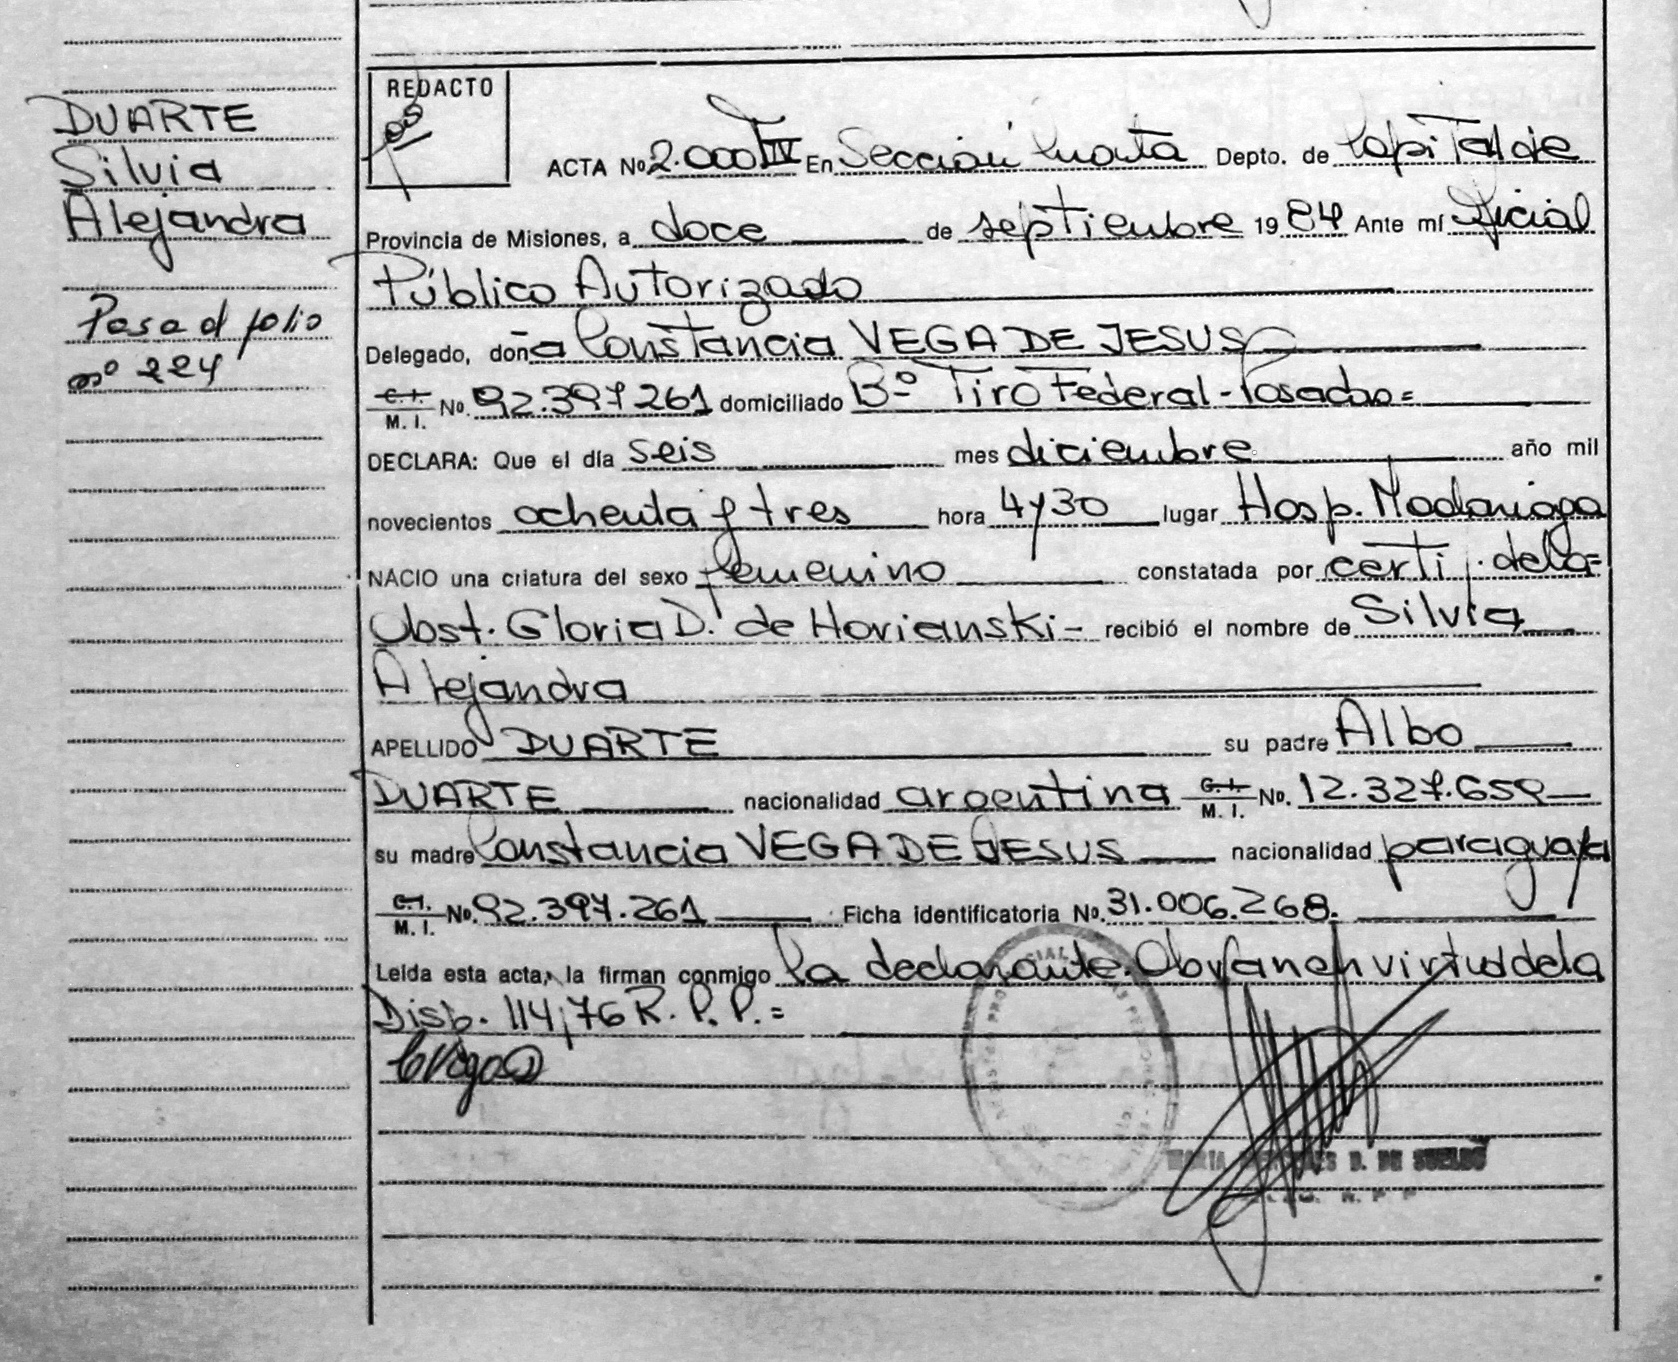 DUARTE
Silvia
Alejandra
Pasa al folio
nº 224
REDACTO
ACTA No 2.000 TIV En Sección Cuarta Depto. de Capital de
Provincia de Misiones, a doce de septiembre 19 84 Ante mí Oficial
Público Autorizado
Delegado, doña Constancia VEGA DE JESUS
C.I. M. I. No. 92.397.261 domiciliado Bº Tiro Federal - Posadas =
DECLARA: Que el día seis mes diciembre año mil
novecientos ochenta y tres hora 4y30 lugar Hosp. Madariaga
NACIO una criatura del sexo femenino constatada por certif. de la =
Obst. Gloria D. de Horianski - recibió el nombre de Silvia
Alejandra
APELLIDO DUARTE su padre Albo
DUARTE nacionalidad argentina C.I. M. I. No. 12.327.659
su madre Constancia VEGA DE JESUS nacionalidad paraguaya
C.I. M. I. No. 92.397.261 Ficha identificatoria No. 31.006.268.
Leída esta acta, la firman conmigo la declarante. Obran en virtud de la
Disp. 114/76 R. P. P. =
CVega
MARIA D. DE SUELDO
R. P. P